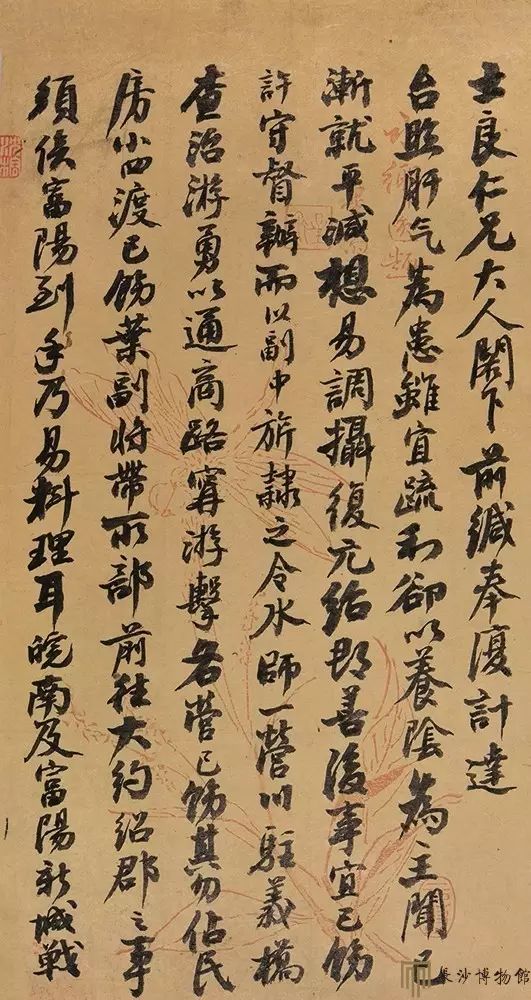 士良仁兄大人閣下前緘奉復計達
台照肝气為患雖宜疏利卻以養陰為主聞已
漸就平減想易調攝復元紹郡善後事宜已飭
許守督辦而以副中旂隸之令水師一營川駐義橋
查治游勇以通商路甯游擊各營已飭其勿佔民
房小西渡已飭葉副将帶所部前往大約紹郡之事
須俟富陽到手乃易料理耳皖南及富陽新城戰
長沙博物館